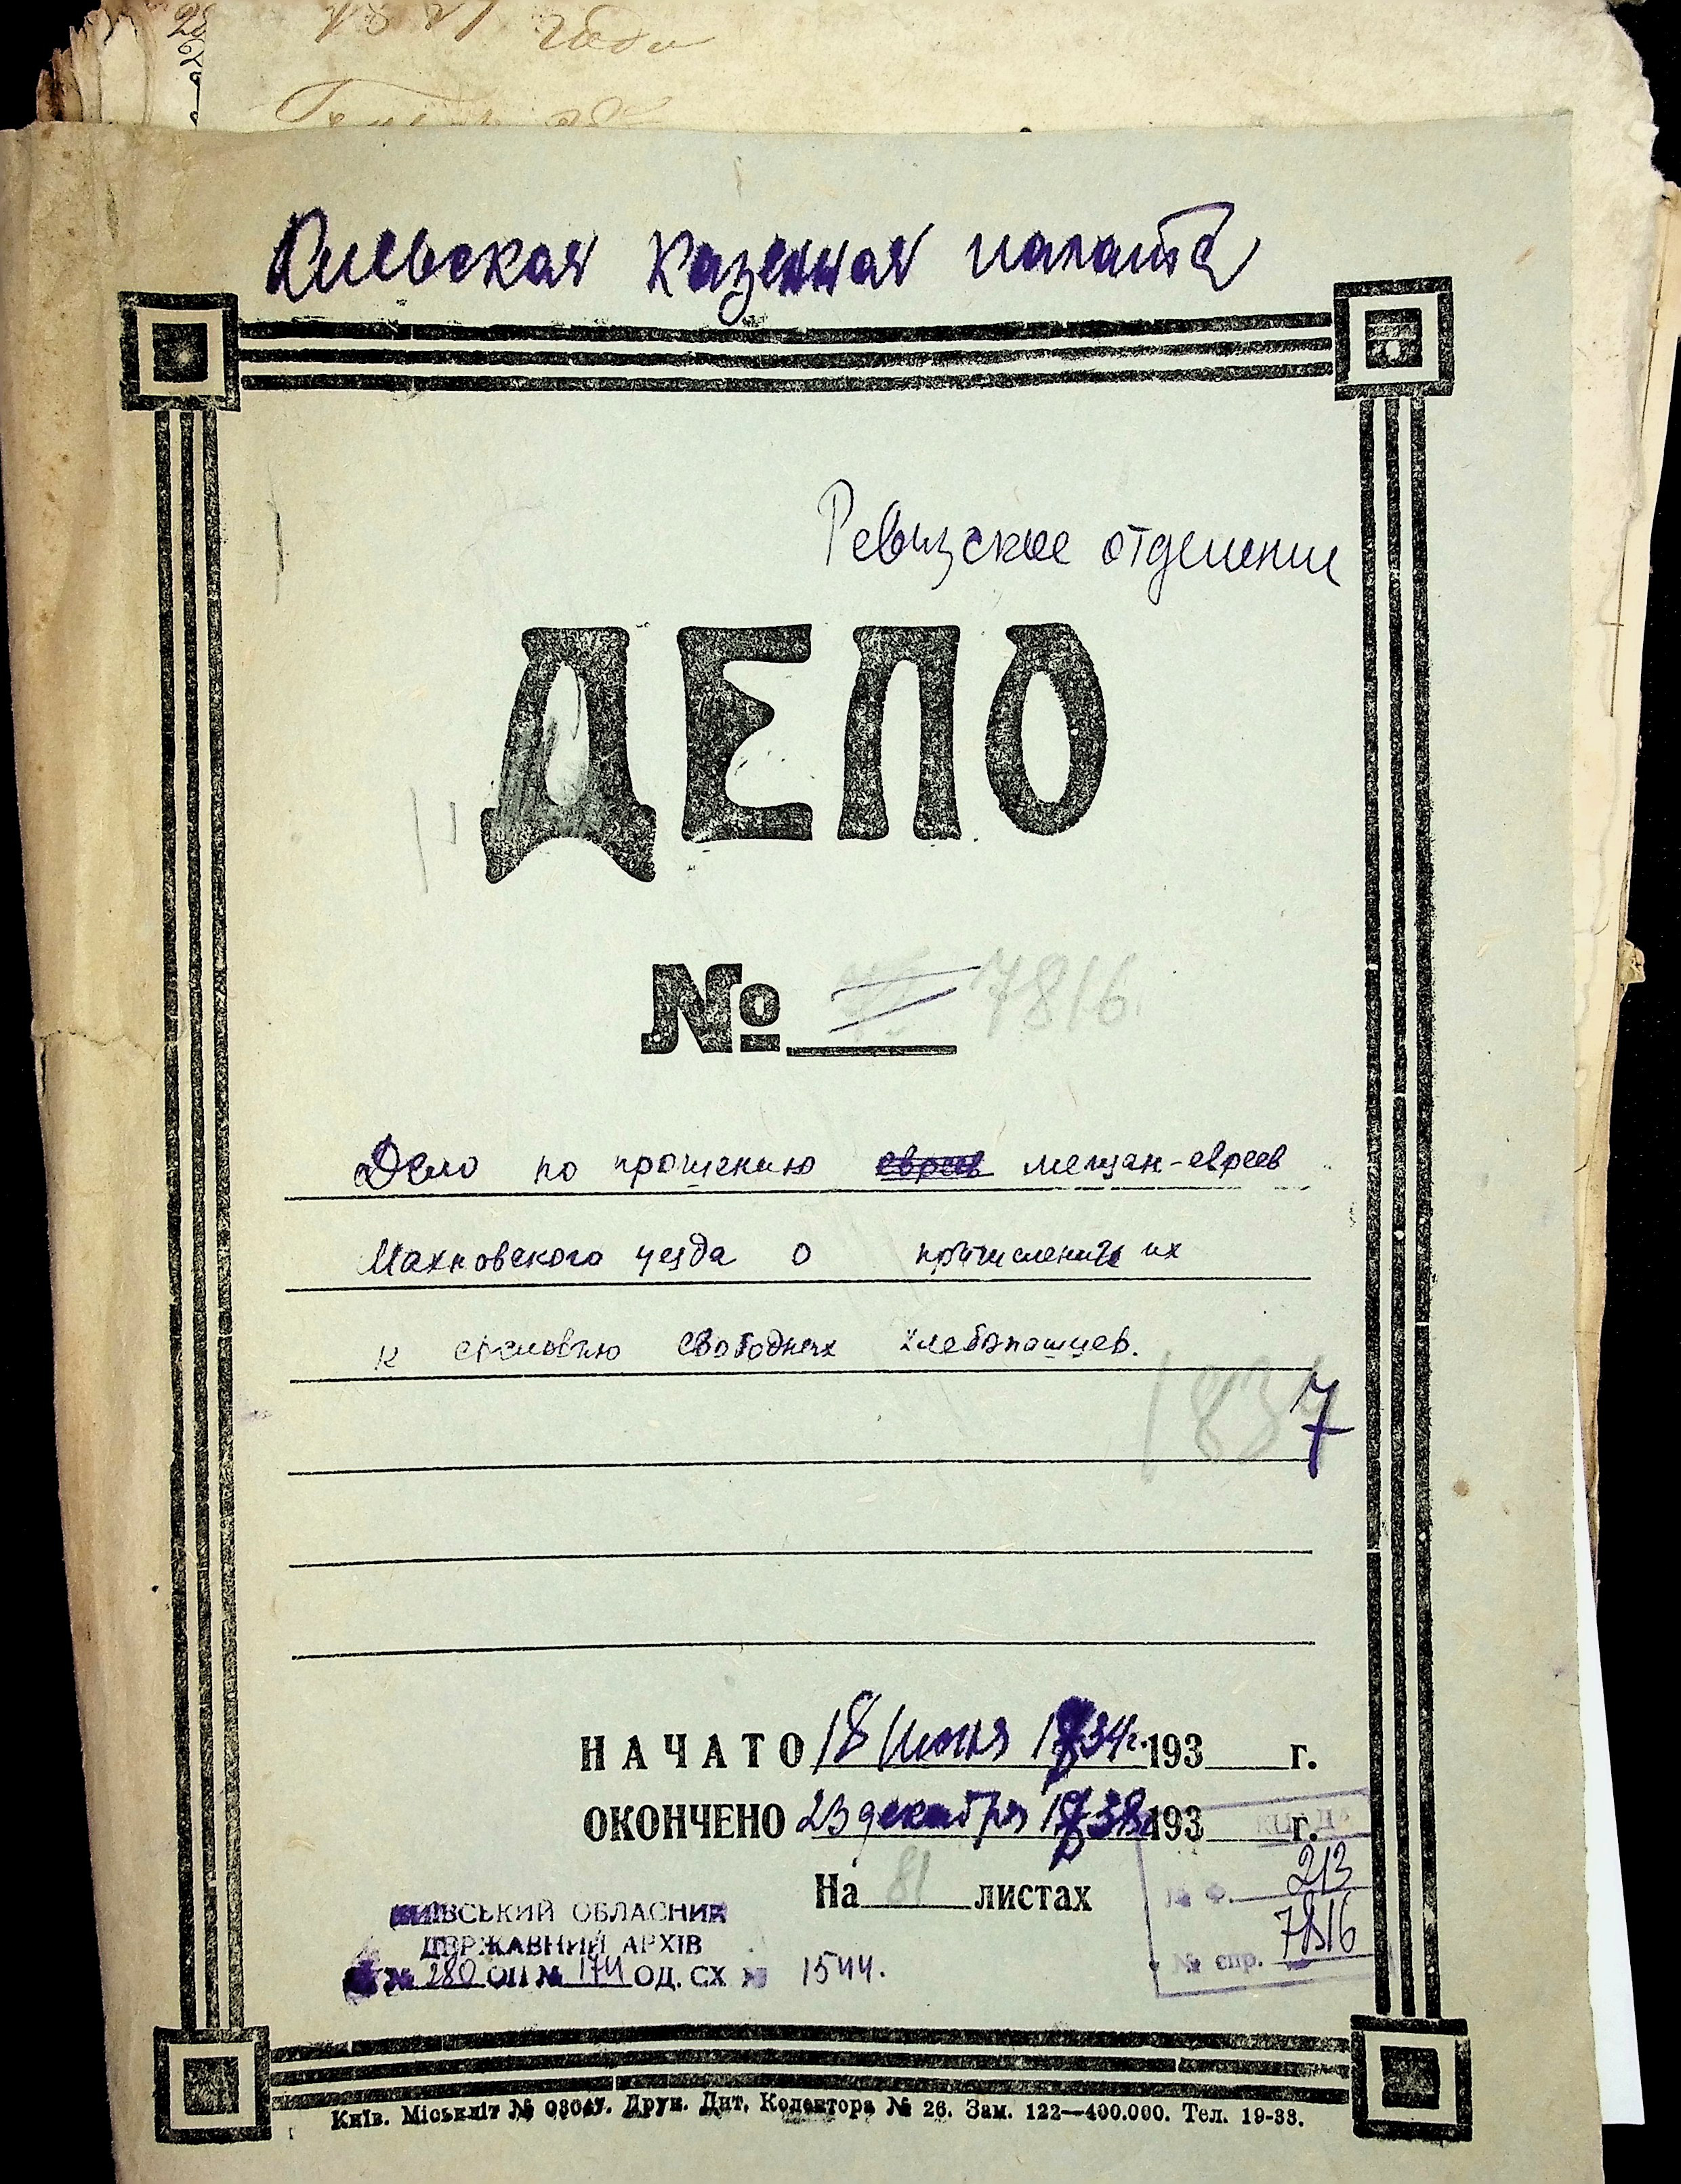 1837 года
Киевская казенная палата
Ревизское отделение
ДЕЛО
№ 7816.
Дело по прошению евреев мещан-евреев
Махновского уезда о причислении их
к сословию свободных хлебопашцев.
1837
НАЧАТО 18 июня 1834г. 193 г.
ОКОНЧЕНО 23 декабря 1838 193 г.
На 81 листах
№ Ф. 213
№ спр. 7816
КИЇВСЬКИЙ ОБЛАСНИЙ
ДЕРЖАВНИЙ АРХІВ
№ 280 ОП № 174 ОД. СХ № 1544.
Київ. Міськліт № 03047. Друк. Дит. Колектора № 26. Зам. 122—400.000. Тел. 19-33.